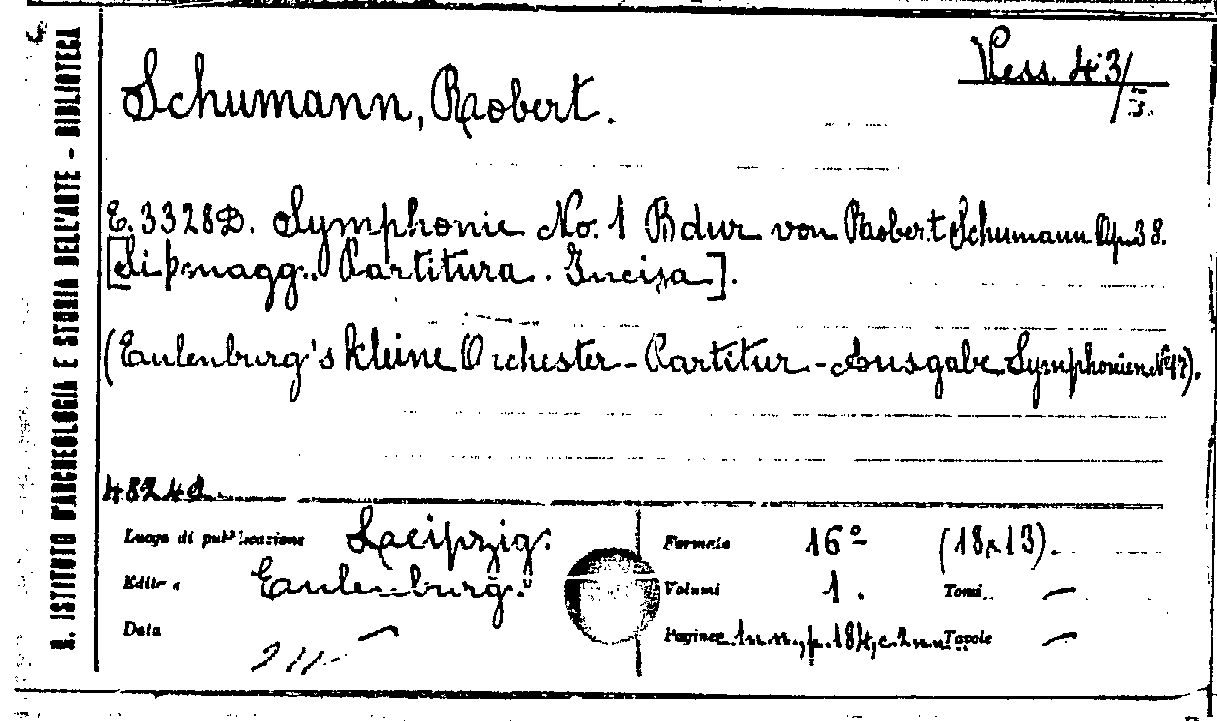 R. ISTITUTO D'ARCHEOLOGIA E STORIA DELL'ARTE - BIBLIOTECA
Vess. 43/
Schumann, Robert.
E. 3328D. Symphonie No. 1 B dur von Robert Schumann Op. 38.
[Lipsnagg. Partitura. Incisa].
(Eulenburg's kleine Orchester-Partitur-Ausgabe Symphonien Nº 17).
48248
Luogo di pubblicazione Leipzig.
Formato 16º (18x13).
Editore Eulenburg.
Volumi 1. Tomi —
Data —
Pagine 1 n.n., p. 184, c. 2 n.n. Tavole —